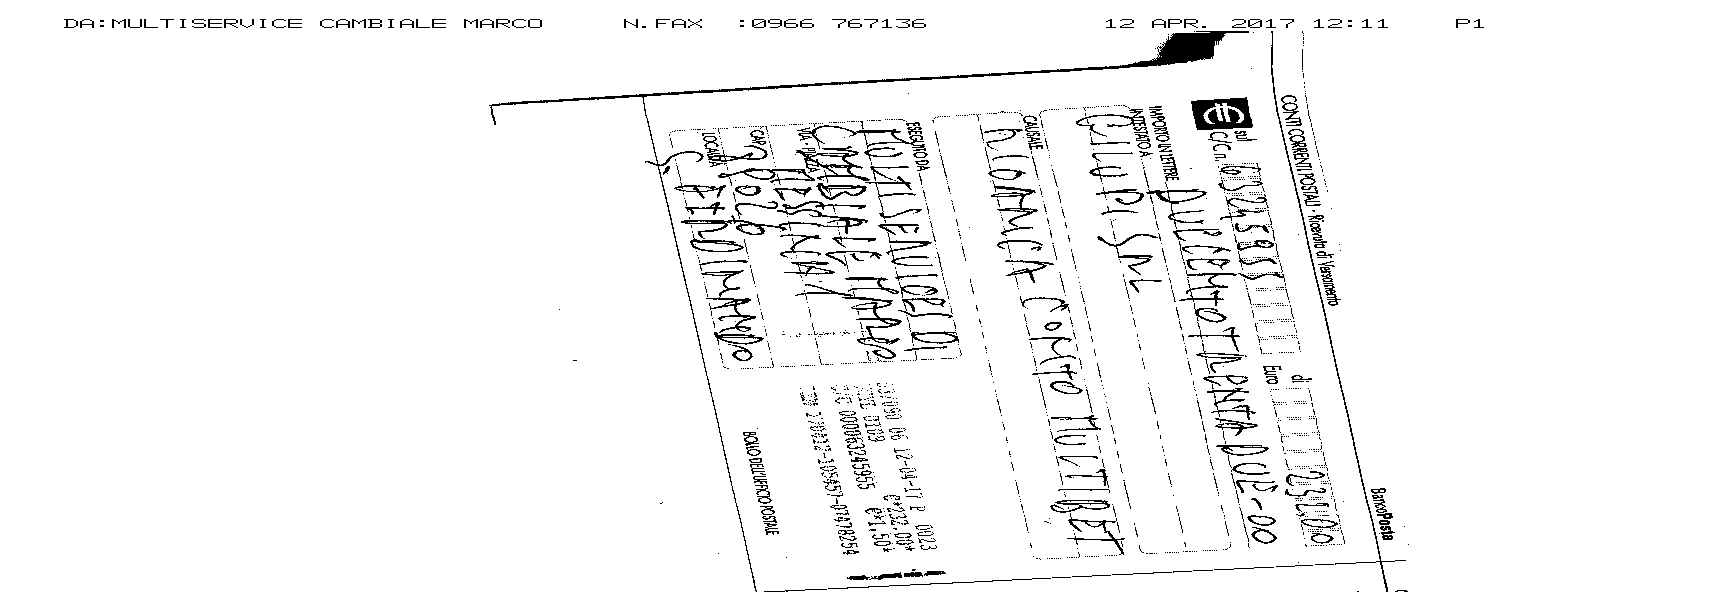 DA:MULTISERVICE CAMBIALE MARCO N.FAX :0966 767136 12 APR. 2017 12:11 P1
CONTI CORRENTI POSTALI - Ricevuta di Versamento BancoPosta
sul C/C n. di Euro 232,00
IMPORTO IN LETTERE DUECENTOTRENTADUE-00
INTESTATO A
SRL
CAUSALE
RICARICA CONTO MULTIBET
ESEGUITO DA
MULTISERVICE DI
CAMBIALE MARCO
VIA - PIAZZA
MESSINA 1
CAP
LOCALITÀ
S. FERDINANDO
06 12-04-17 P 0023
0109 €*232,00*
000063245955 €*1,50*
BOLLO DELL'UFFICIO POSTALE